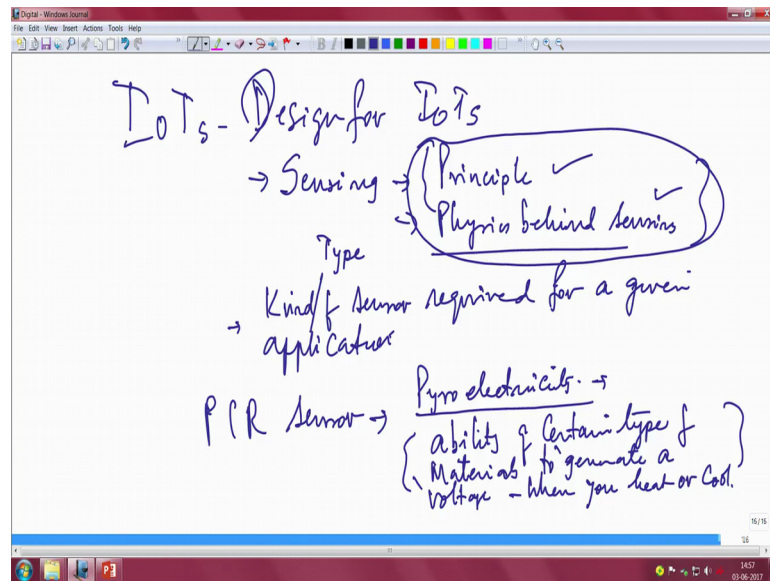 Digital - Windows Journal
File Edit View Insert Actions Tools Help
IoTs - Design for IoTs
→ Sensing → Principle ✓
→ Physics behind sensing ✓
Type
→ Kind/of sensor required for a given
application
PIR sensor → Pyroelectricity. →
ability of Certain type of
Materials to generate a
voltage - when you heat or Cool.
16/16
16
14:57
03-06-2017